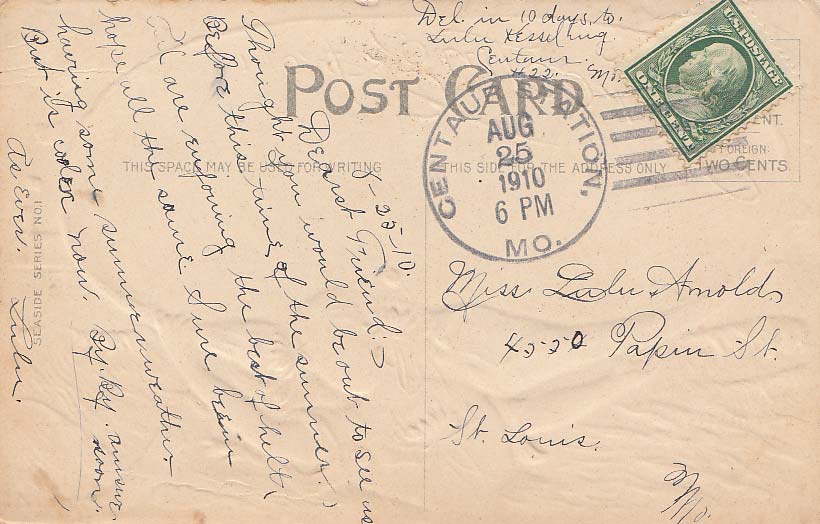 Del. in 10 days to.
Lulu Kesselring
Centaur.
#22. Mo.
POST CARD
U.S. POSTAGE
ONE CENT
CENTAUR STATION,
AUG
25
1910
6 PM
MO.
FOREIGN:
TWO CENTS.
THIS SPACE MAY BE USED FOR WRITING
THIS SIDE FOR THE ADDRESS ONLY
SEASIDE SERIES NO.1
Miss Lulu Arnold
4520 Papin St.
St. Louis.
Mo.
8-25-10.
Dearst Friend:-
Thought you would be out to see us
Before this time of the summer.
All are enjoying the best of helth
hope all the same. Sure been
having some summer weather.
But its cooler now. By. By. answer soon.
As Ever. Lulu.